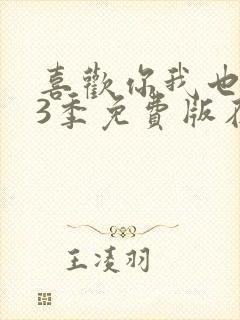 喜歡你我也
3季免費版
王凌羽